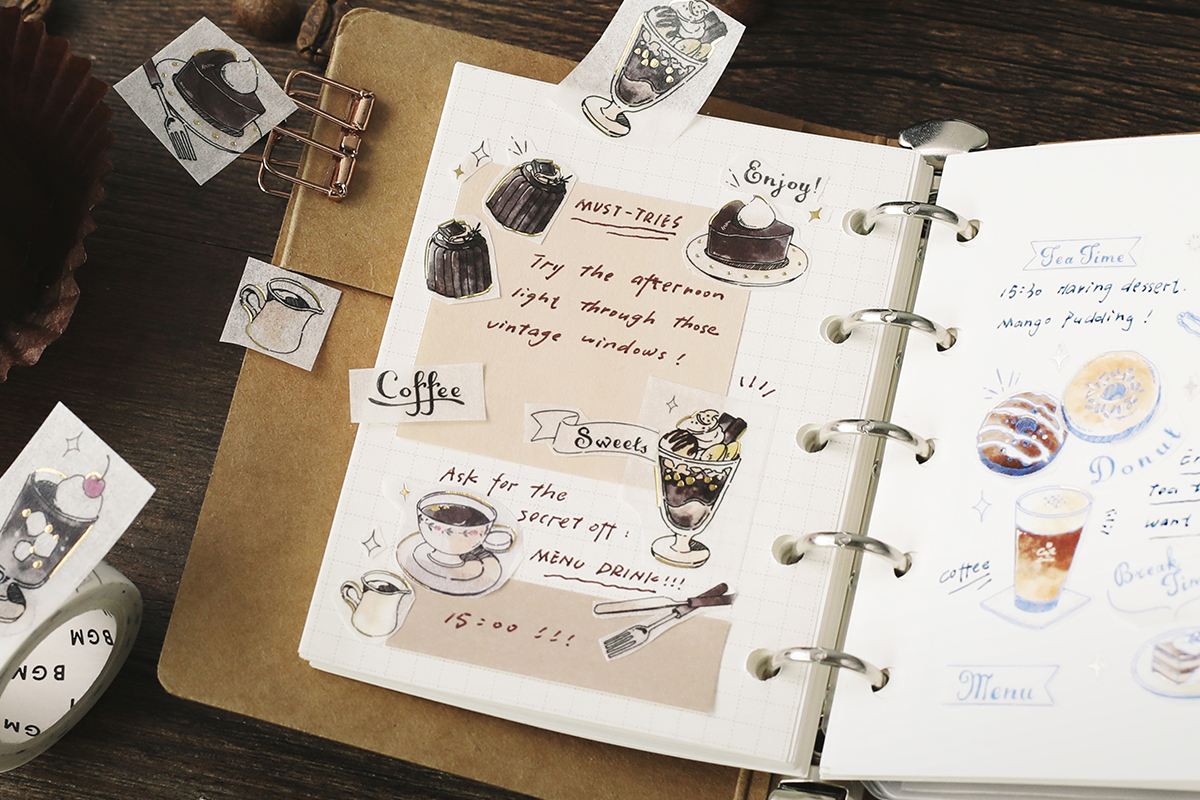 Enjoy!
MUST-TRIES
Try the afternoon
light through those
vintage windows!
Coffee
Sweets
Ask for the
secret off:
MENU DRINK!!!
15:00 !!!
BGM
BGM
Tea Time
15:30 Having dessert.
Mango Pudding!
Donut
Tea
want
coffee
Break
Time
Menu